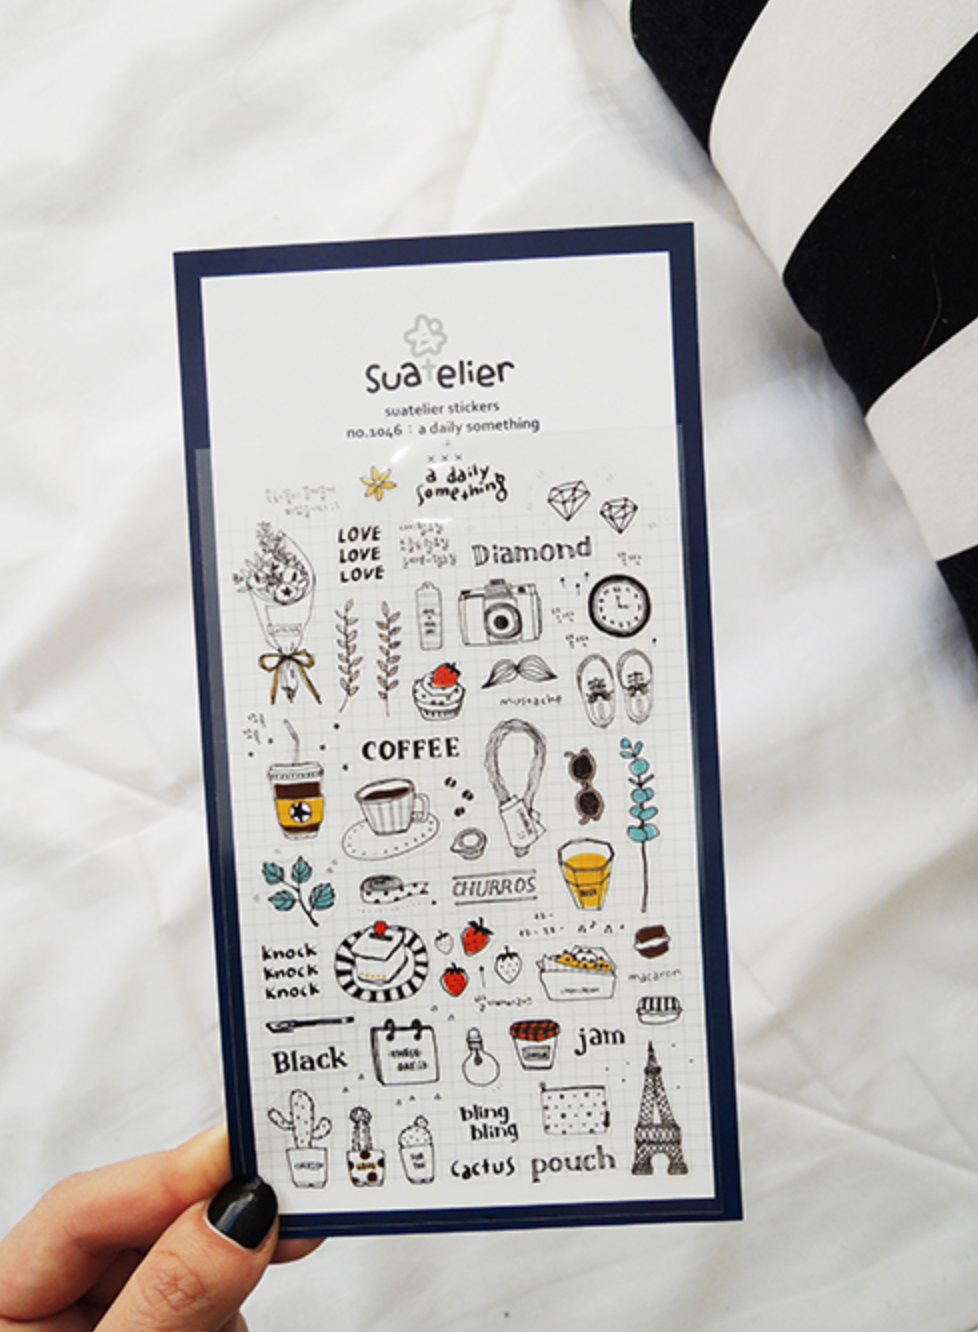 suatelier
suatelier stickers
no.1046 : a daily something
a daily
something
LOVE
LOVE
LOVE
Diamond
mustache
COFFEE
CHURROS
knock
knock
knock
macaron
Black
jam
bling
bling
cactus
pouch